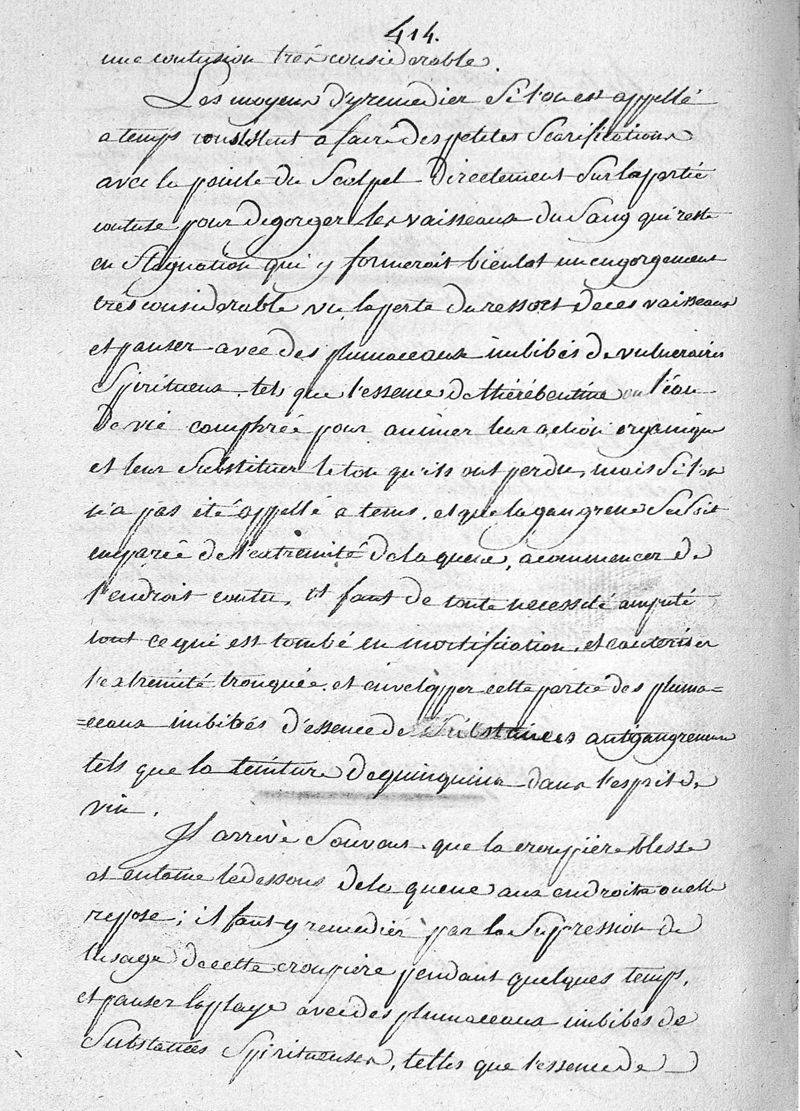 414.
une contusion très considerable.
Les moyens d'y remedier si l'on est appellé
a temps consistent a faire des petites scarifications
avec la pointe du scalpel directement sur la partie
contuse pour degorger les vaisseaux du sang qui reste
en stagnation qui y formeroit bientot un engorgement
très considerable vu la perte du ressort de ces vaisseaux
et panser avec des plumaceaux imbibés de vulneraires
spiritueux, tels que l'essence de thérébentine ou l'eau
de vie camphrée pour animer leur action organique
et leur substituer le ton qu'ils ont perdu, mais si l'on
n'a pas été appellé a tems, et que la gangrene se soit
emparée de l'extremité de la queue, a commencer de
l'endroit contu, il faut de toute necessité amputé
tout ce qui est tombé en mortification, et cauteriser
l'extremité tronquée, et envelopper cette partie des pluma=
=ceaux imbibés d'essence de substances antigangreneuse
tels que la teinture de quinquina dans l'esprit de
vin.
Il arrive souvent que la croupière blesse
et entame le dessous de la queue aux endroits ou elle
repose; il faut y remedier par la supression de
l'usage de cette croupière pendant quelques temps,
et panser la playe avec des plumaceaux imbibés de
substances spiritueuses, telles que l'essence de